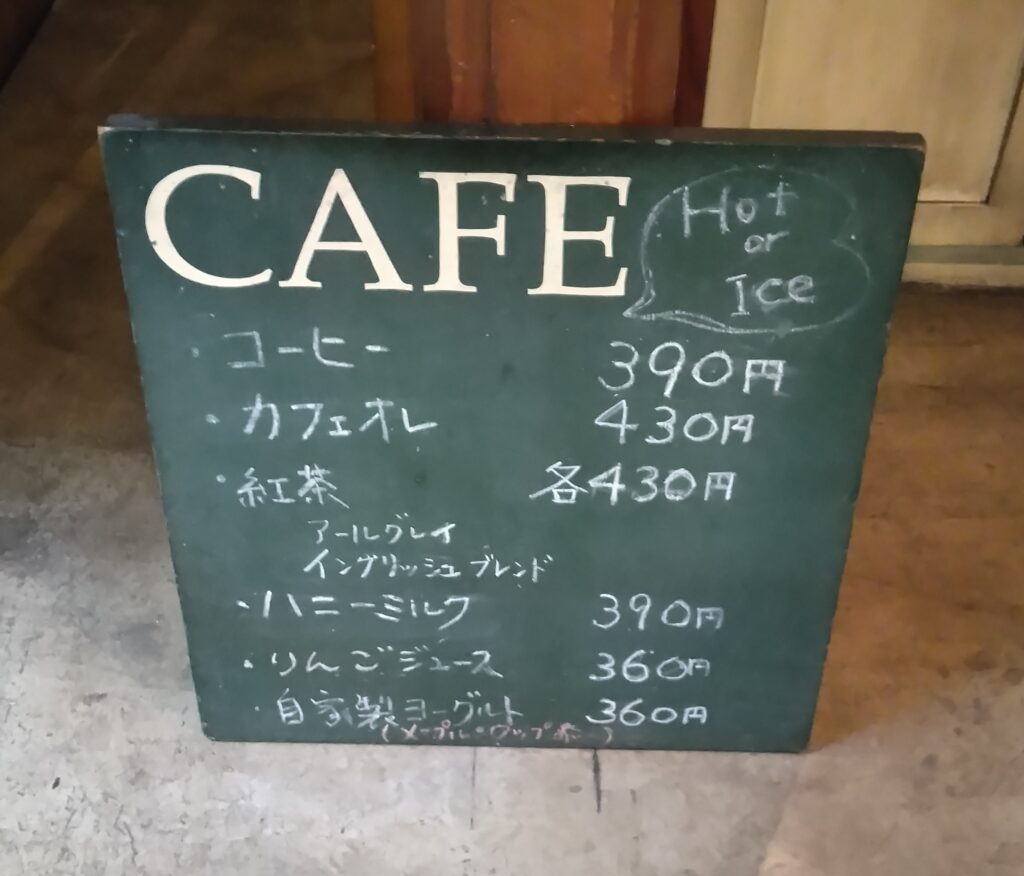 CAFE
Hot
or
Ice
・コーヒー 390円
・カフェオレ 430円
・紅茶 各430円
アールグレイ
イングリッシュブレンド
・ハニーミルク 390円
・りんごジュース 360円
・自家製ヨーグルト 360円
(メープル